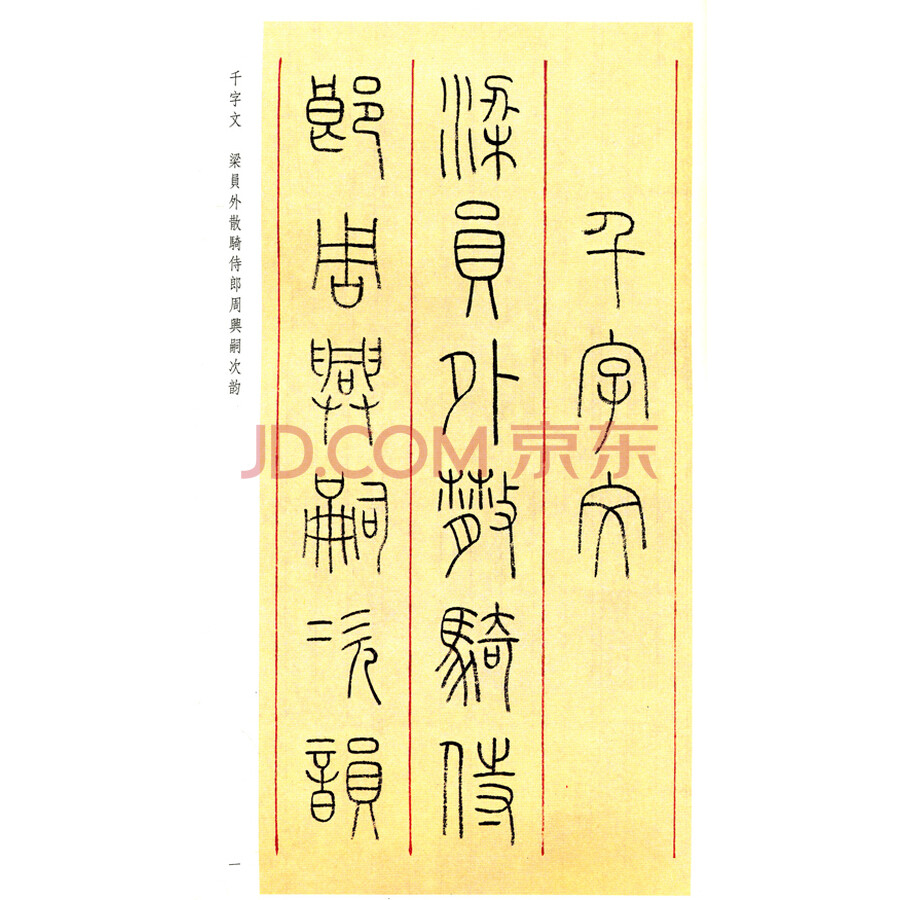 千字文
梁員外散騎侍
郎周興嗣次韻
千字文 梁員外散騎侍郎周興嗣次韵
一
JD.COM 京东